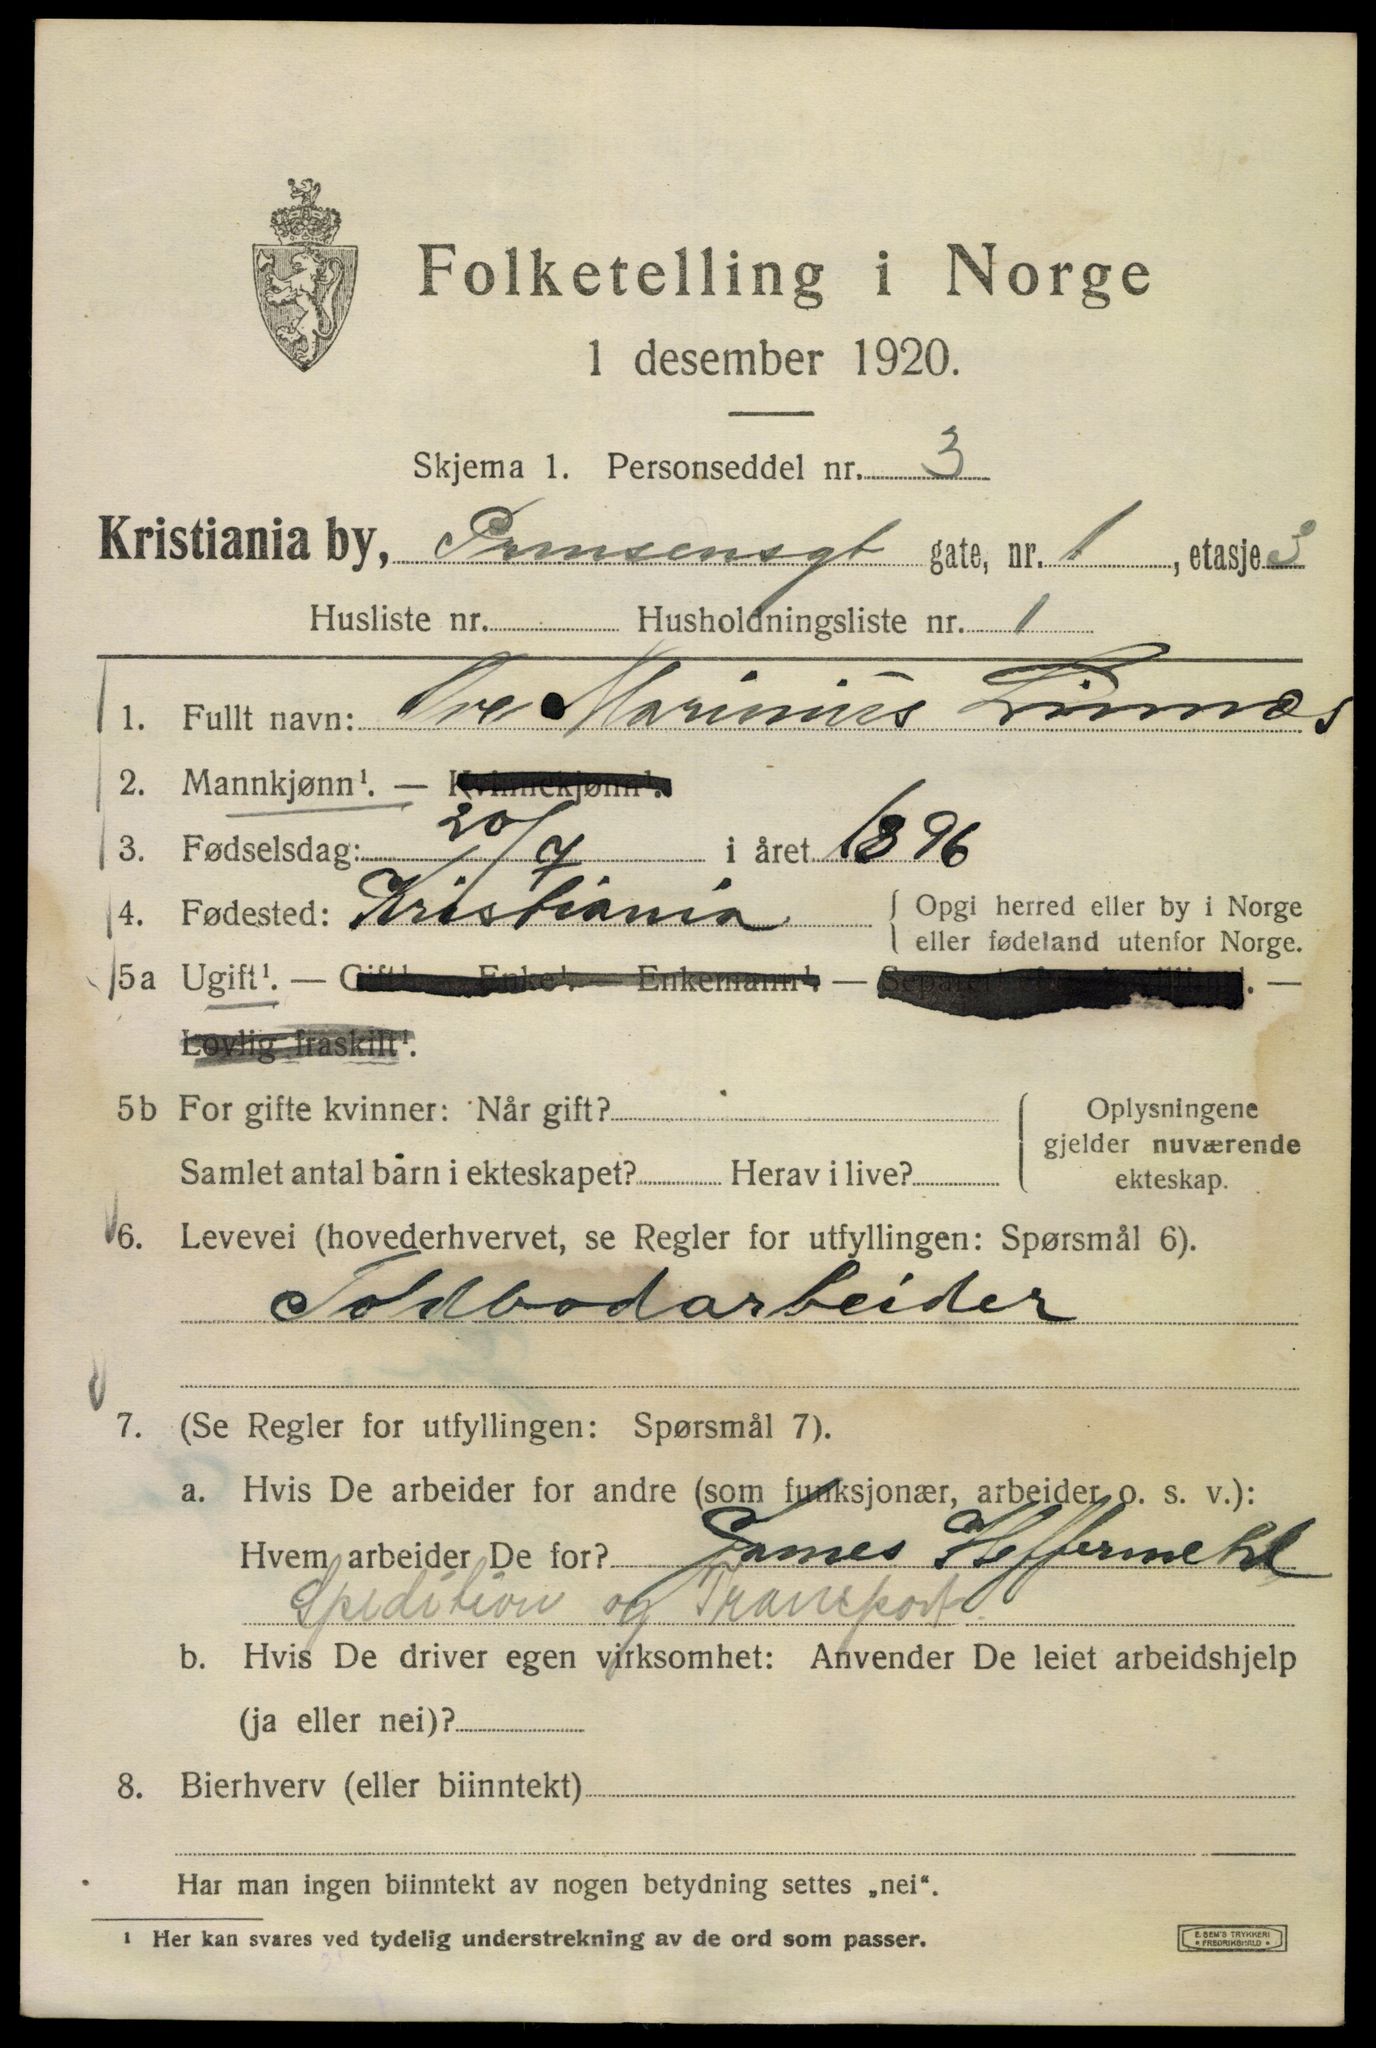 Folketelling i Norge
1 desember 1920.
Skjema 1. Personseddel nr. 3
Kristiania by, Prinsensgt gate, nr. 1, etasje 3
Husliste nr. Husholdningsliste nr. 1
1. Fullt navn: Ove Marinius Linnæs
2. Mannkjønn¹. — Kvinnekjønn¹.
3. Fødselsdag: 20/7 i året 1896
4. Fødested: Kristiania { Opgi herred eller by i Norge
eller fødeland utenfor Norge.
5a Ugift¹. — Gift¹. — Enke¹. — Enkemann¹. — Separert —
Lovlig fraskilt¹.
5b For gifte kvinner: Når gift? { Oplysningene
gjelder nuværende
Samlet antal barn i ekteskapet? Herav i live? ekteskap.
6. Levevei (hovederhvervet, se Regler for utfyllingen: Spørsmål 6).
Toldbodarbeider
7. (Se Regler for utfyllingen: Spørsmål 7).
a. Hvis De arbeider for andre (som funksjonær, arbeider o. s. v.):
Hvem arbeider De for? James Heffermehl
Spedition og Transport.
b. Hvis De driver egen virksomhet: Anvender De leiet arbeidshjelp
(ja eller nei)?
8. Bierhverv (eller biinntekt)
Har man ingen biinntekt av nogen betydning settes „nei“.
¹ Her kan svares ved tydelig understrekning av de ord som passer.
E. SEM'S TRYKKERI
FREDRIKSHALD